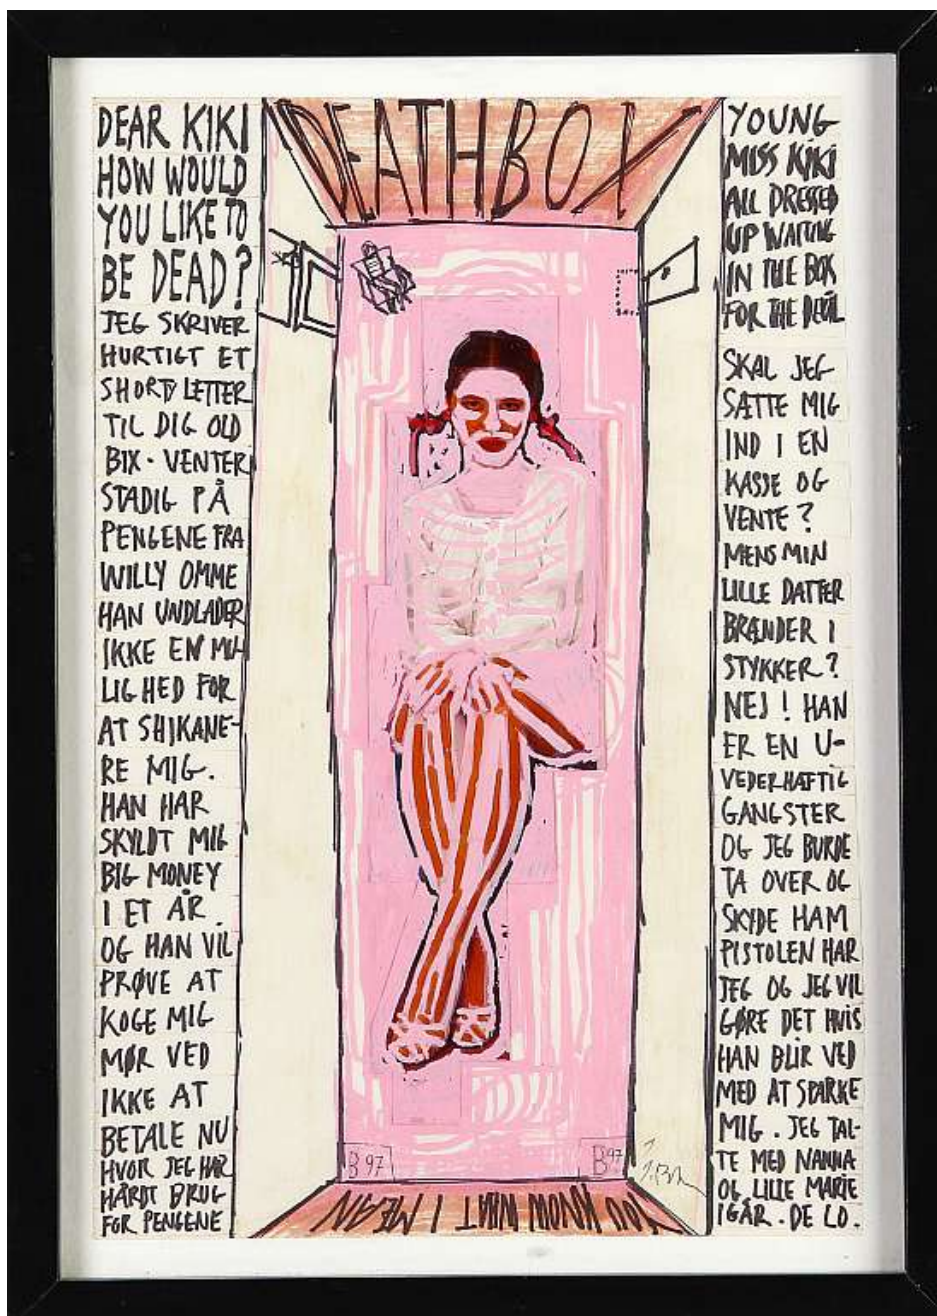 DEATHBOX
DEAR KIKI
HOW WOULD
YOU LIKE TO
BE DEAD?
JEG SKRIVER
HURTIGT ET
SHORT LETTER
TIL DIG OLD
BIX. VENTER
STADIG PÅ
PENGENE FRA
WILLY OMME
HAN UNDLADER
IKKE EN MU-
LIGHED FOR
AT SHIKANE-
RE MIG.
HAN HAR
SKYLDT MIG
BIG MONEY
I ET ÅR
OG HAN VIL
PRØVE AT
KOGE MIG
MØR VED
IKKE AT
BETALE NU
HVOR JEG HAR
HÅRDT BRUG
FOR PENGENE
YOUNG
MISS KIKI
ALL DRESSED
UP WAITING
IN THE BOX
FOR THE DEVIL
SKAL JEG
SÆTTE MIG
IND I EN
KASSE OG
VENTE?
MENS MIN
LILLE DATTER
BRÆNDER I
STYKKER?
NEJ! HAN
ER EN U-
VEDERHÆFTIG
GANGSTER
OG JEG BURDE
TA OVER OG
SKYDE HAM
PISTOLEN HAR
JEG OG JEG VIL
GØRE DET HVIS
HAN BLIR VED
MED AT SPARKE
MIG. JEG TAL-
TE MED NANNA
OG LILLE MARIE
IGÅR. DE LO.
B97
B97
YOU KNOW WHAT I MEAN